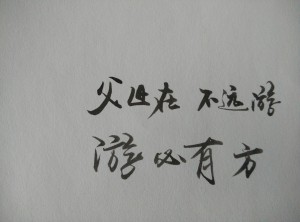 父母在 不远游
游必有方